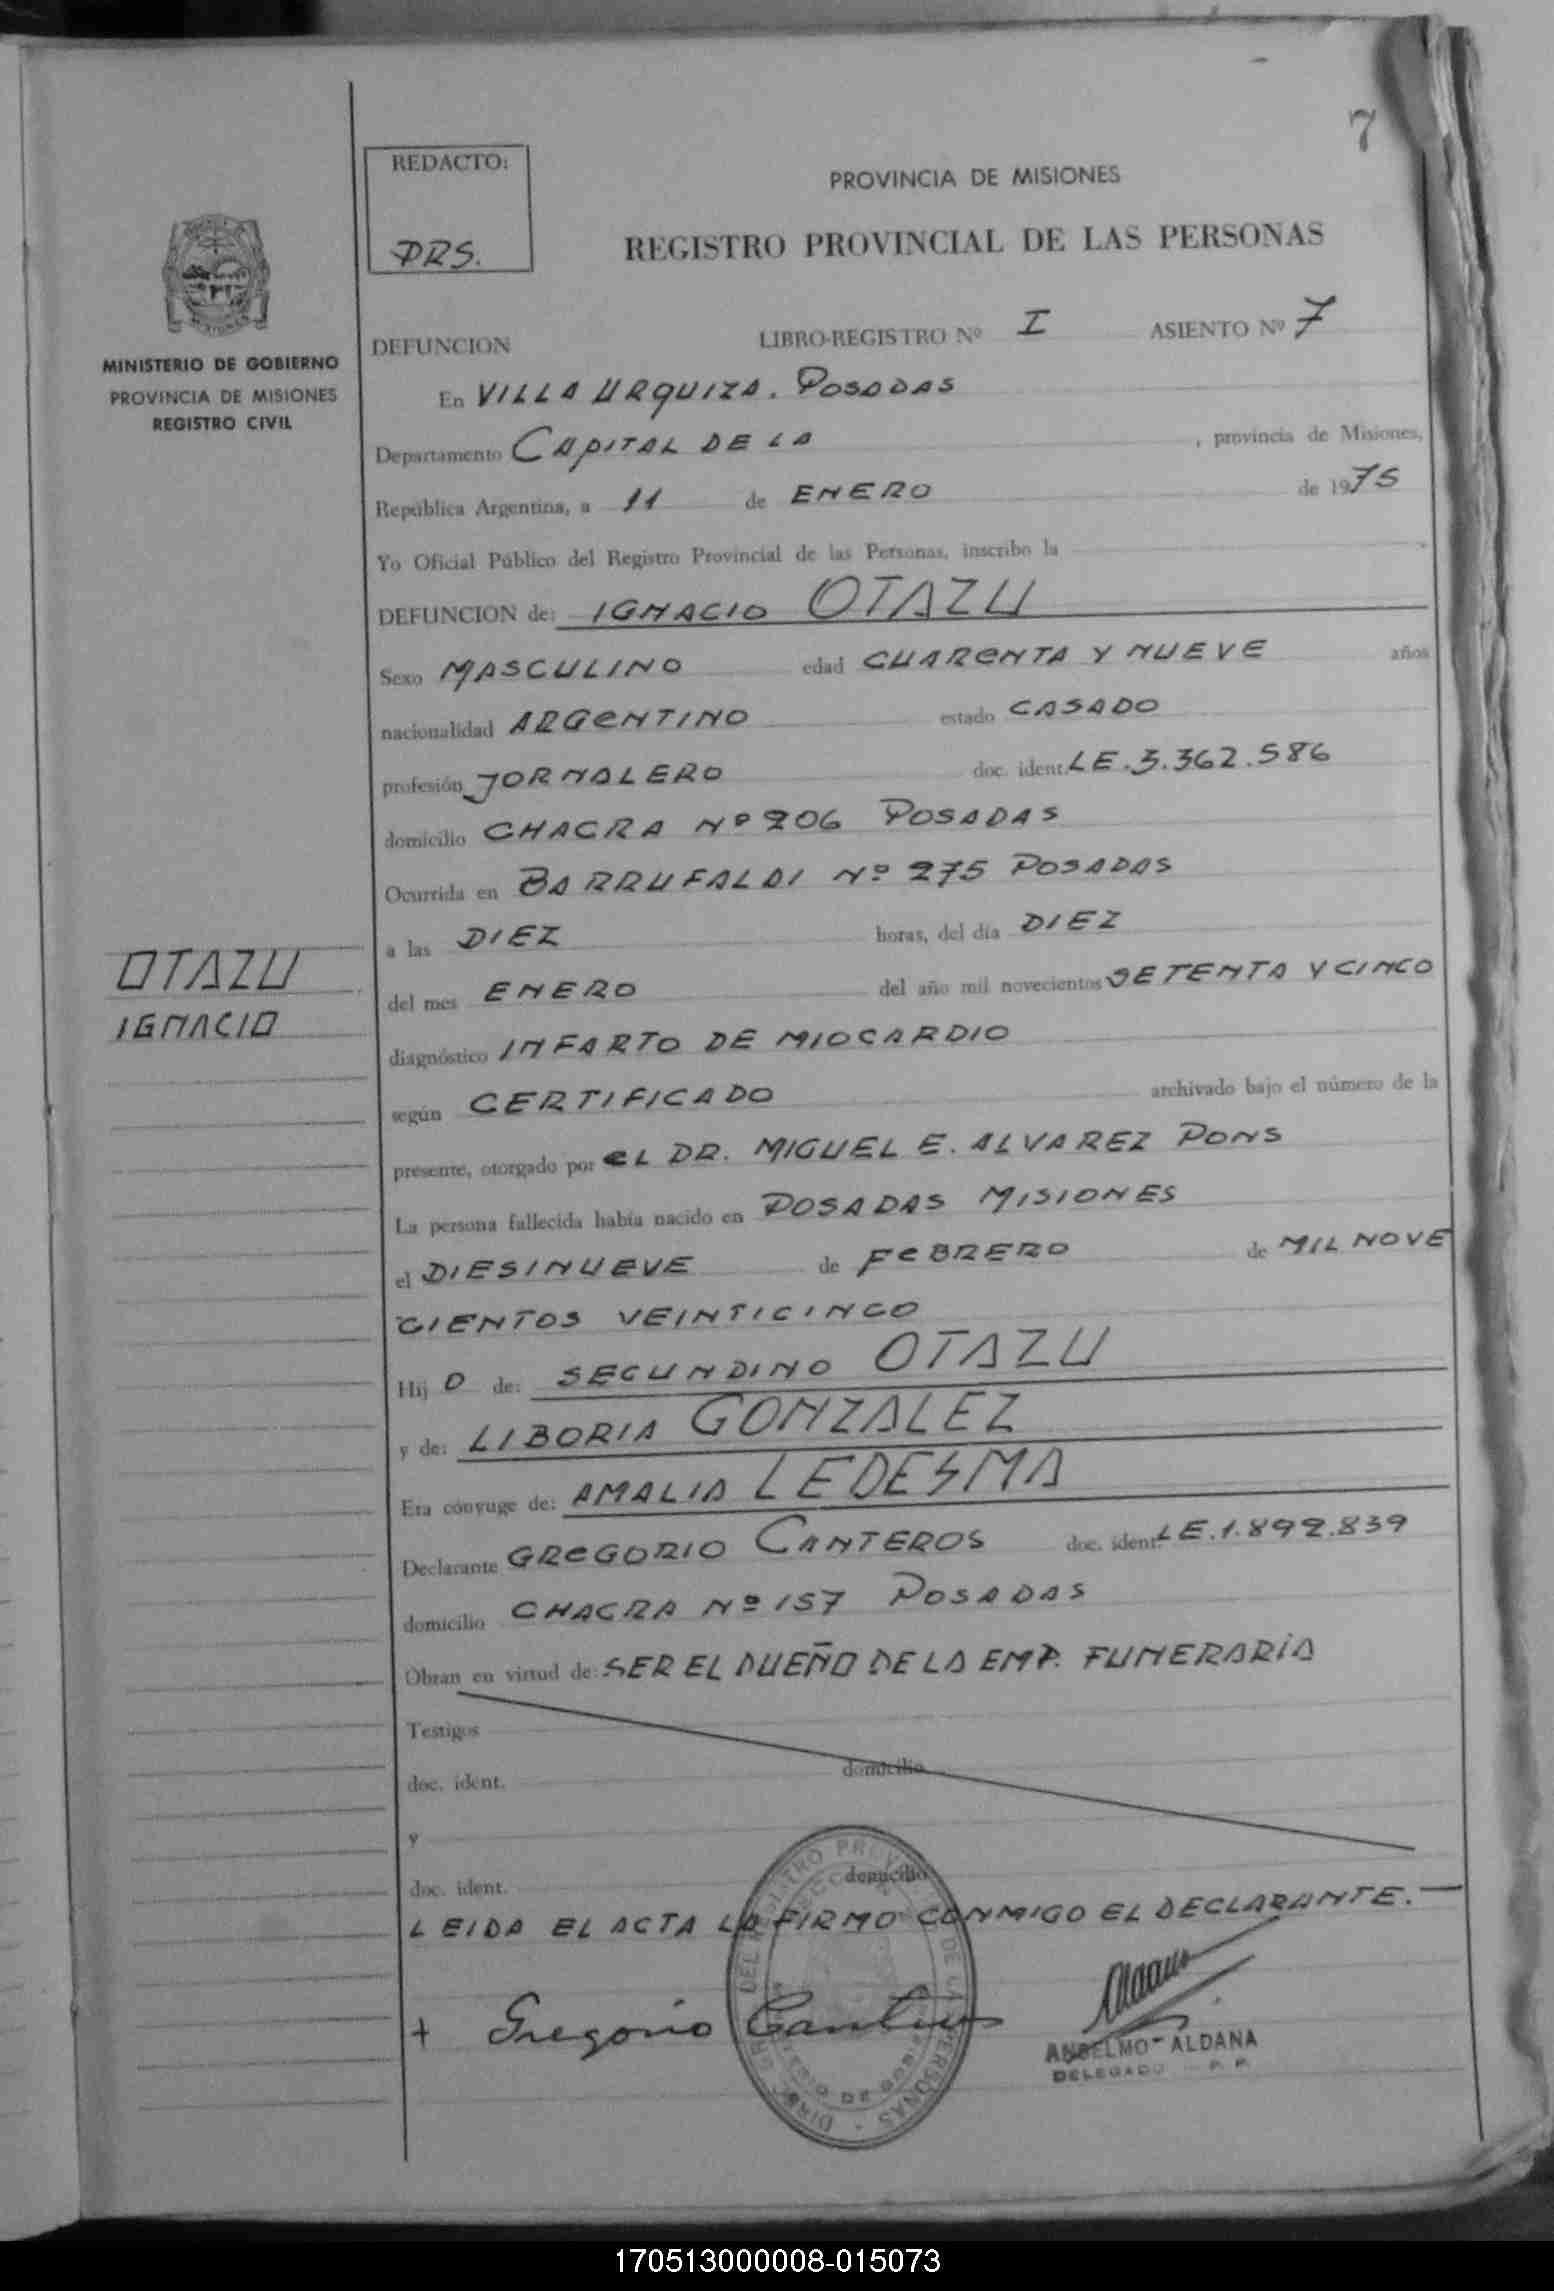 7
REDACTO:
PRS.
PROVINCIA DE MISIONES
REGISTRO PROVINCIAL DE LAS PERSONAS
MINISTERIO DE GOBIERNO
PROVINCIA DE MISIONES
REGISTRO CIVIL
DEFUNCION LIBRO-REGISTRO Nº I ASIENTO Nº 7
En VILLA URQUIZA. POSADAS
Departamento CAPITAL DE LA , provincia de Misiones,
República Argentina, a 11 de ENERO de 1975
Yo Oficial Público del Registro Provincial de las Personas, inscribo la
DEFUNCION de: IGNACIO OTAZU
Sexo MASCULINO edad CUARENTA Y NUEVE años
nacionalidad ARGENTINO estado CASADO
profesión JORNALERO doc. ident. LE.3.362.586
domicilio CHACRA Nº 206 POSADAS
Ocurrida en BARRUFALDI Nº 275 POSADAS
a las DIEZ horas, del día DIEZ
del mes ENERO del año mil novecientos SETENTA Y CINCO
OTAZU
IGNACIO
diagnóstico INFARTO DE MIOCARDIO
según CERTIFICADO archivado bajo el número de la
presente, otorgado por EL DR. MIGUEL E. ALVAREZ PONS
La persona fallecida había nacido en POSADAS MISIONES
el DIESINUEVE de FEBRERO de MIL NOVE
CIENTOS VEINTICINCO
Hij O de: SEGUNDINO OTAZU
y de: LIBORIA GONZALEZ
Era cónyuge de: AMALIA LEDESMA
Declarante GREGORIO CANTEROS doc. ident. LE.1.892.839
domicilio CHACRA Nº 157 POSADAS
Obran en virtud de: SER EL DUEÑO DE LA EMP. FUNERARIA
Testigos
doc. ident. domicilio
y
doc. ident. domicilio
LEIDA EL ACTA LA FIRMO CONMIGO EL DECLARANTE.
+ Gregorio Canteros
Aldana
ANSELMO ALDANA
DELEGADO
170513000008-015073